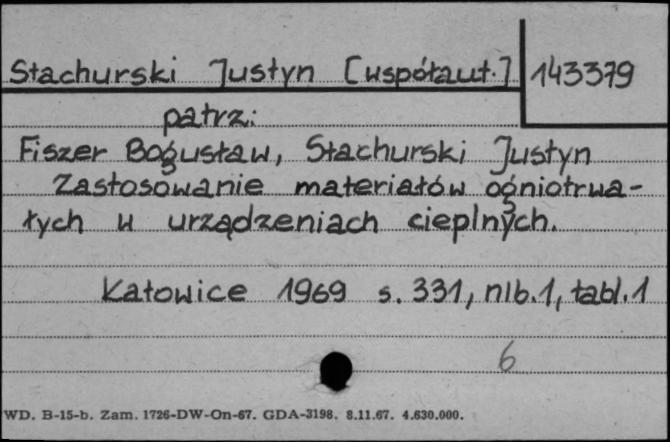 Stachurski Justyn [współaut.] 143379
patrz:
Fiszer Bogusław, Stachurski Justyn
Zastosowanie materiałów ogniotrwa-
łych w urządzeniach cieplnych.
Katowice 1969 s. 331, nlb.1, tabl.1
6
WD. B-15-b. Zam. 1726-DW-On-67. GDA-3198. 8.11.67. 4.630.000.